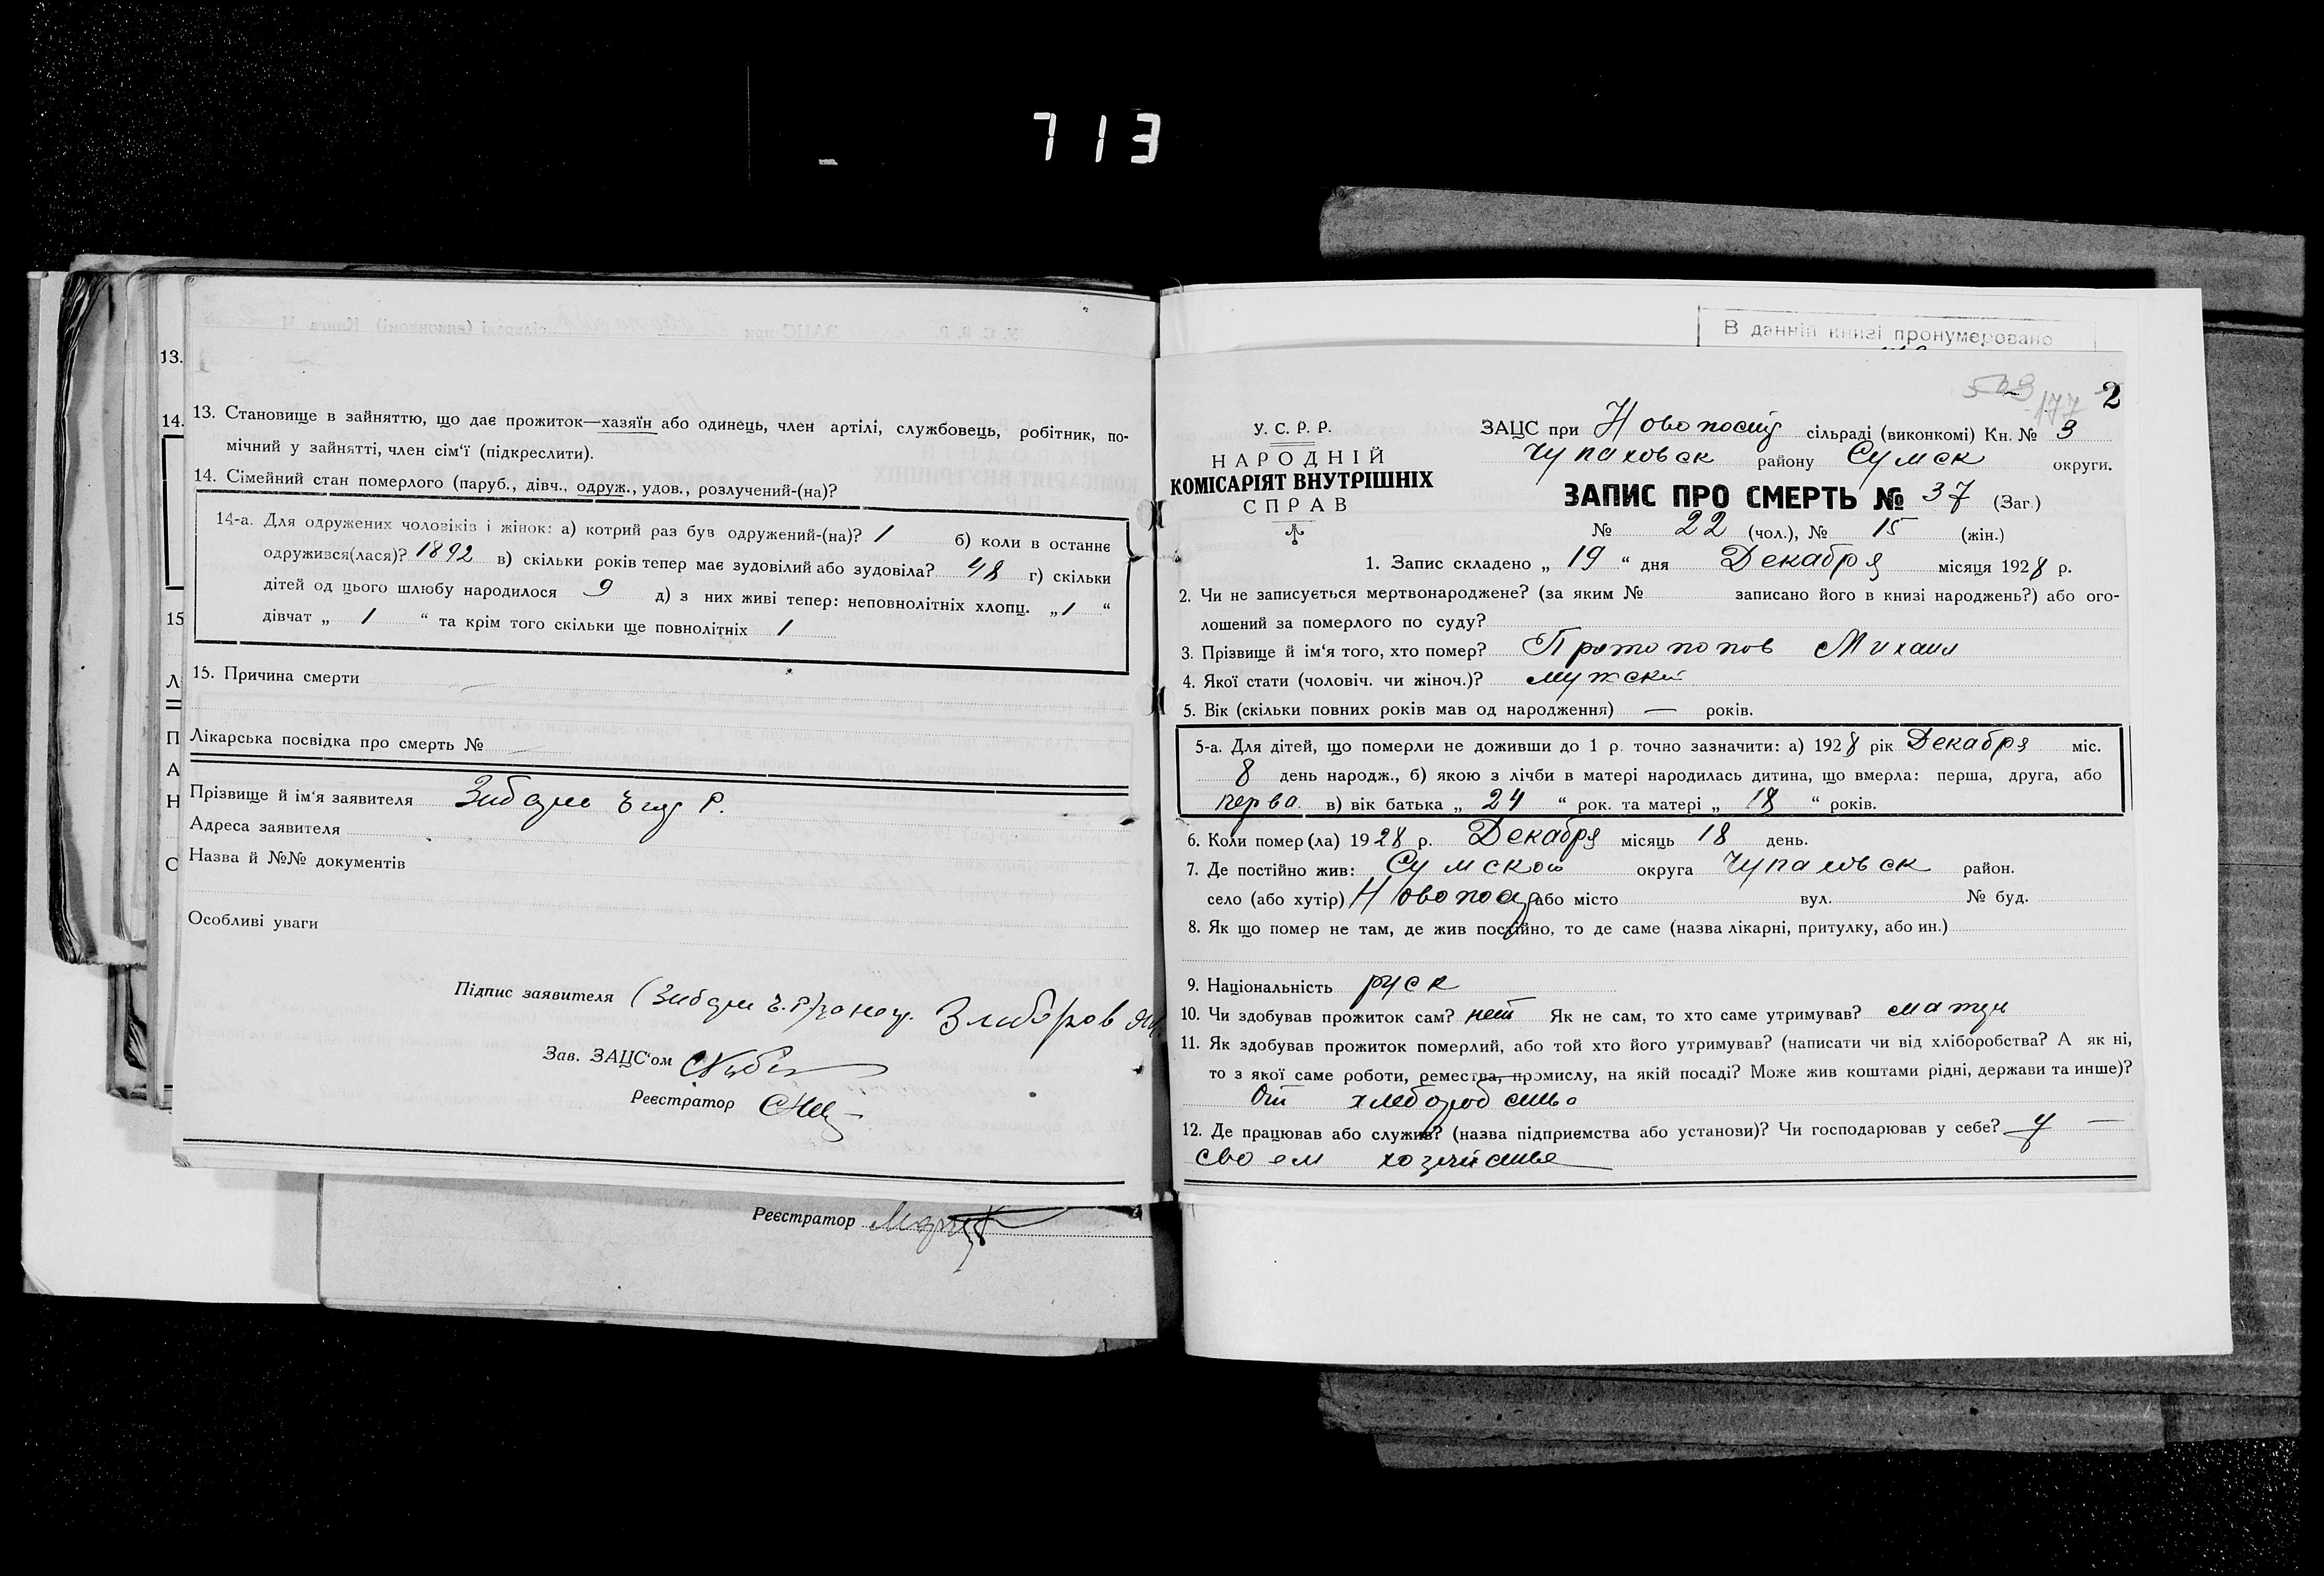 713
13.
14.
15
Л
П
А
Н
О
13. Становище в зайняттю, що дає прожиток—хазяїн або одинець, член артілі, службовець, робітник, по-
мічний у зайнятті, член сім'ї (підкреслити).
14. Сімейний стан померлого (паруб., дівч., одруж., удов., розлучений-(на)?
14-а. Для одружених чоловіків і жінок: а) котрий раз був одружений-(на)? 1 б) коли в останнє
одружився(лася)? 1892 в) скільки років тепер має зудовілий або зудовіла? 48 г) скільки
дітей од цього шлюбу народилося 9 д) з них живі тепер: неповнолітніх хлопц. „1“
дівчат „ 1 “ та крім того скільки ще повнолітніх 1
15. Причина смерти
Лікарська посвідка про смерть №
Прізвище й ім'я заявителя
Адреса заявителя
Назва й №№ документів
Особливі уваги
Підпис заявителя
Зав. ЗАЦС'ом
Реєстратор
Реєстратор
В данній книзі пронумеровано
177 2
У. С. Р. Р.
НАРОДНІЙ
КОМІСАРІЯТ ВНУТРІШНІХ
СПРАВ
ЗАЦС при сільраді (виконкомі) Кн. № 3
Чупаховск району Сумск округи.
ЗАПИС ПРО СМЕРТЬ № 37 (Заг.)
№ 22 (чол.), № 15 (жін.)
1. Запис складено „ 19 “ дня Декабря місяця 1928 р.
2. Чи не записується мертвонароджене? (за яким № записано його в книзі народжень?) або ого-
лошений за померлого по суду?
3. Прізвище й ім'я того, хто помер? Протопопов Михаил
4. Якої стати (чоловіч. чи жіноч.)? мужской
5. Вік (скільки повних років мав од народження) — років.
5-а. Для дітей, що померли не доживши до 1 р. точно зазначити: а) 1928 рік Декабря міс.
8 день народж., б) якою з лічби в матері народилась дитина, що вмерла: перша, друга, або
перва в) вік батька „ 24 “ рок. та матері „ 18 “ років.
6. Коли помер(ла) 1928 р. Декабря місяць 18 день.
7. Де постійно жив: Сумской округа Чупаховск район.
село (або хутір) або місто вул. № буд.
8. Як що помер не там, де жив постійно, то де саме (назва лікарні, притулку, або ин.)
9. Національність руск
10. Чи здобував прожиток сам? нет Як не сам, то хто саме утримував?
11. Як здобував прожиток померлий, або той хто його утримував? (написати чи від хліборобства? А як ні,
то з якої саме роботи, ремества, промислу, на якій посаді? Може жив коштами рідні, держави та инше)?
От хлебородства
12. Де працював або служив? (назва підприємства або установи)? Чи господарював у себе? у —
своем хозяйстве